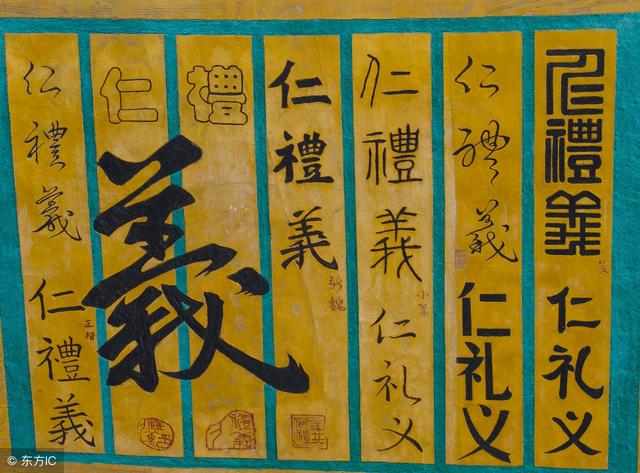 仁禮義
仁礼义
仁禮義
仁礼义
仁禮義
仁礼义
仁禮義
新魏
禮
仁
義
仁禮義
仁禮義
正楷
© 东方IC